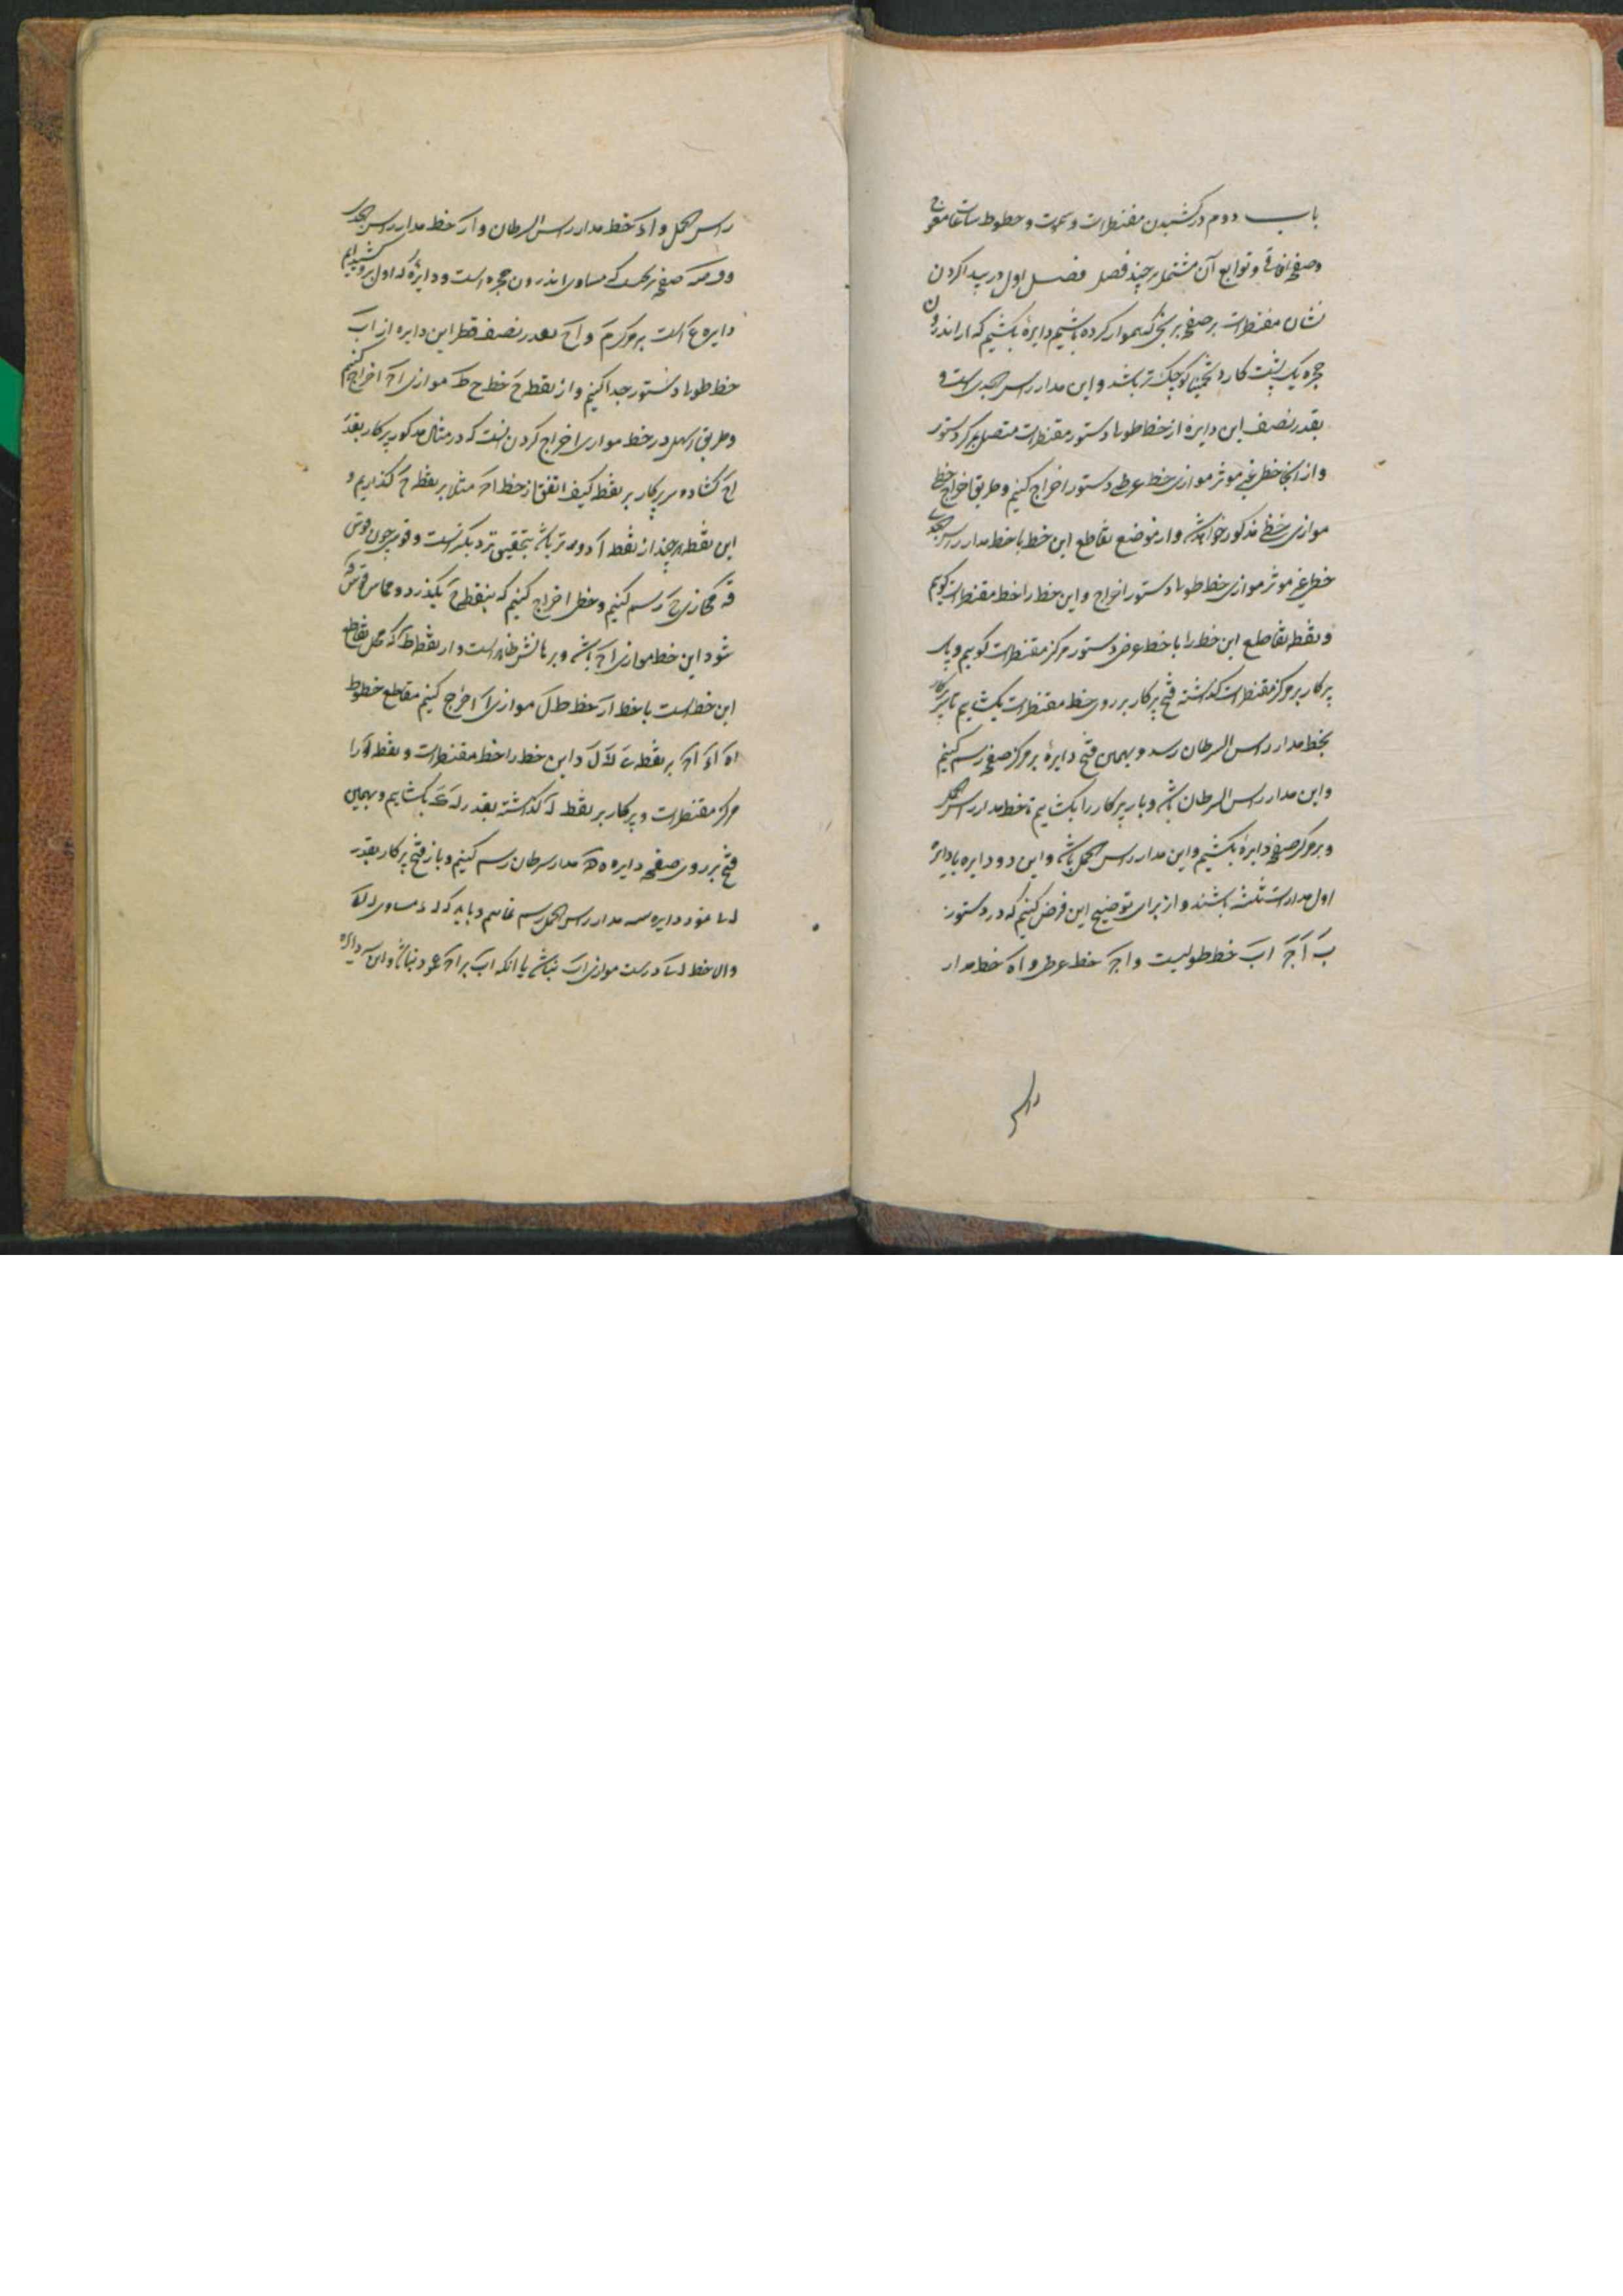 باب دوم در کشیدن مقنطرات و سموت و خطوط ساعات معوج
و صفحه آفاقی و توابع آن مشتمل بر چند فصل فصل اول در پیدا کردن
نشان مقنطرات بر صفحه برنجی که هموار کرده باشیم دایرهٔ بکشیم که از اندرون
حجره یک پشت کارد تخمینا کوچک تر باشد و این مدار راس الجدی است و
بقدر نصف این دایره از خط طولی دستور مقنطرات متصل بمرکز دستور
و از آنجا خطی غیر موثر موازی خط عرضی دستور اخراج کنیم و طریق اخراج خط
موازی خط مذکور خواهد شد و از موضع تقاطع این خط با خط مدار راس الجدی
خطی غیر موثر موازی خط طولی دستور اخراج و این خط را خط مقنطرات گویم
و نقطه تقاطع این خط را با خط عرض دستور مرکز مقنطرات گوییم و پای
پرکار بر مرکز مقنطرات گذاشته فتح پرکار بر روی خط مقنطرات بکشاییم تا سر پرکار
بخط مدار راس السرطان رسد و بهمین فتح دایرهٔ بر مرکز صفحه رسم کنیم
و این مدار راس السرطان باشد و باز پرکار را بکشاییم تا خط مدار راس الحمل
و بر مرکز صفحه دایرهٔ بکشیم و این مدار راس الحمل باشد و این دو دایره با دایرهٔ
اول مدارات ثلثه باشند و از برای توضیح این فرض کنیم که در دستور
ب ا ج اب خط طولیست و اج خط عرضی و اه خط مدار
راس
راس الحمل و اد خط مدار راس السرطان و ار خط مدار راس الجدی
و صفحه که مساوی اندرون حجره است و دایرهٔ که اول بر او کشیدیم
دایره ع است بر مرکز م و اح بقدر نصف قطر این دایره از اب
خط طولی دستور جدا کنیم و از نقطه ح خط ح ط موازی اج اخراج کنیم
و طریق اسهل در خط موازی اخراج کردن انست که در مثال مذکور پرکار بقدر
اح کشاده سر پرکار بر نقطه کیف اتفق از خط اج مثلا بر نقطه ج گذاریم و
این نقطه هر چند از نقطه ا دورتر باشد بتحقیق نزدیکتر است و قوسی چون قوس
ق محاذی ج رسم کنیم و خطی اخراج کنیم که بنقطه ح بگذرد و مماس قوس ق
شود این خط موازی اج باشد و برهانش ظاهر است و از نقطه ط که محل تقاطع
این خط است با خط ار خط ط ل موازی ا اخراج کنیم مقاطع خطوط
اه اد اج بر نقطه ل و این خط را خط مقنطرات و نقطه ل را
مرکز مقنطرات و پرکار بر نقطه ل گذاشته بقدر ل بکشاییم و بهمین
فتح بر روی صفحه دایره مدار سرطان رسم کنیم و باز فتح پرکار بقدر
نموده دایره مدار راس الحمل رسم نماییم و باید که مساوی
والا خط درست موازی اب نباشد یا آنکه اب بر اج عمود نباشد و این دایره